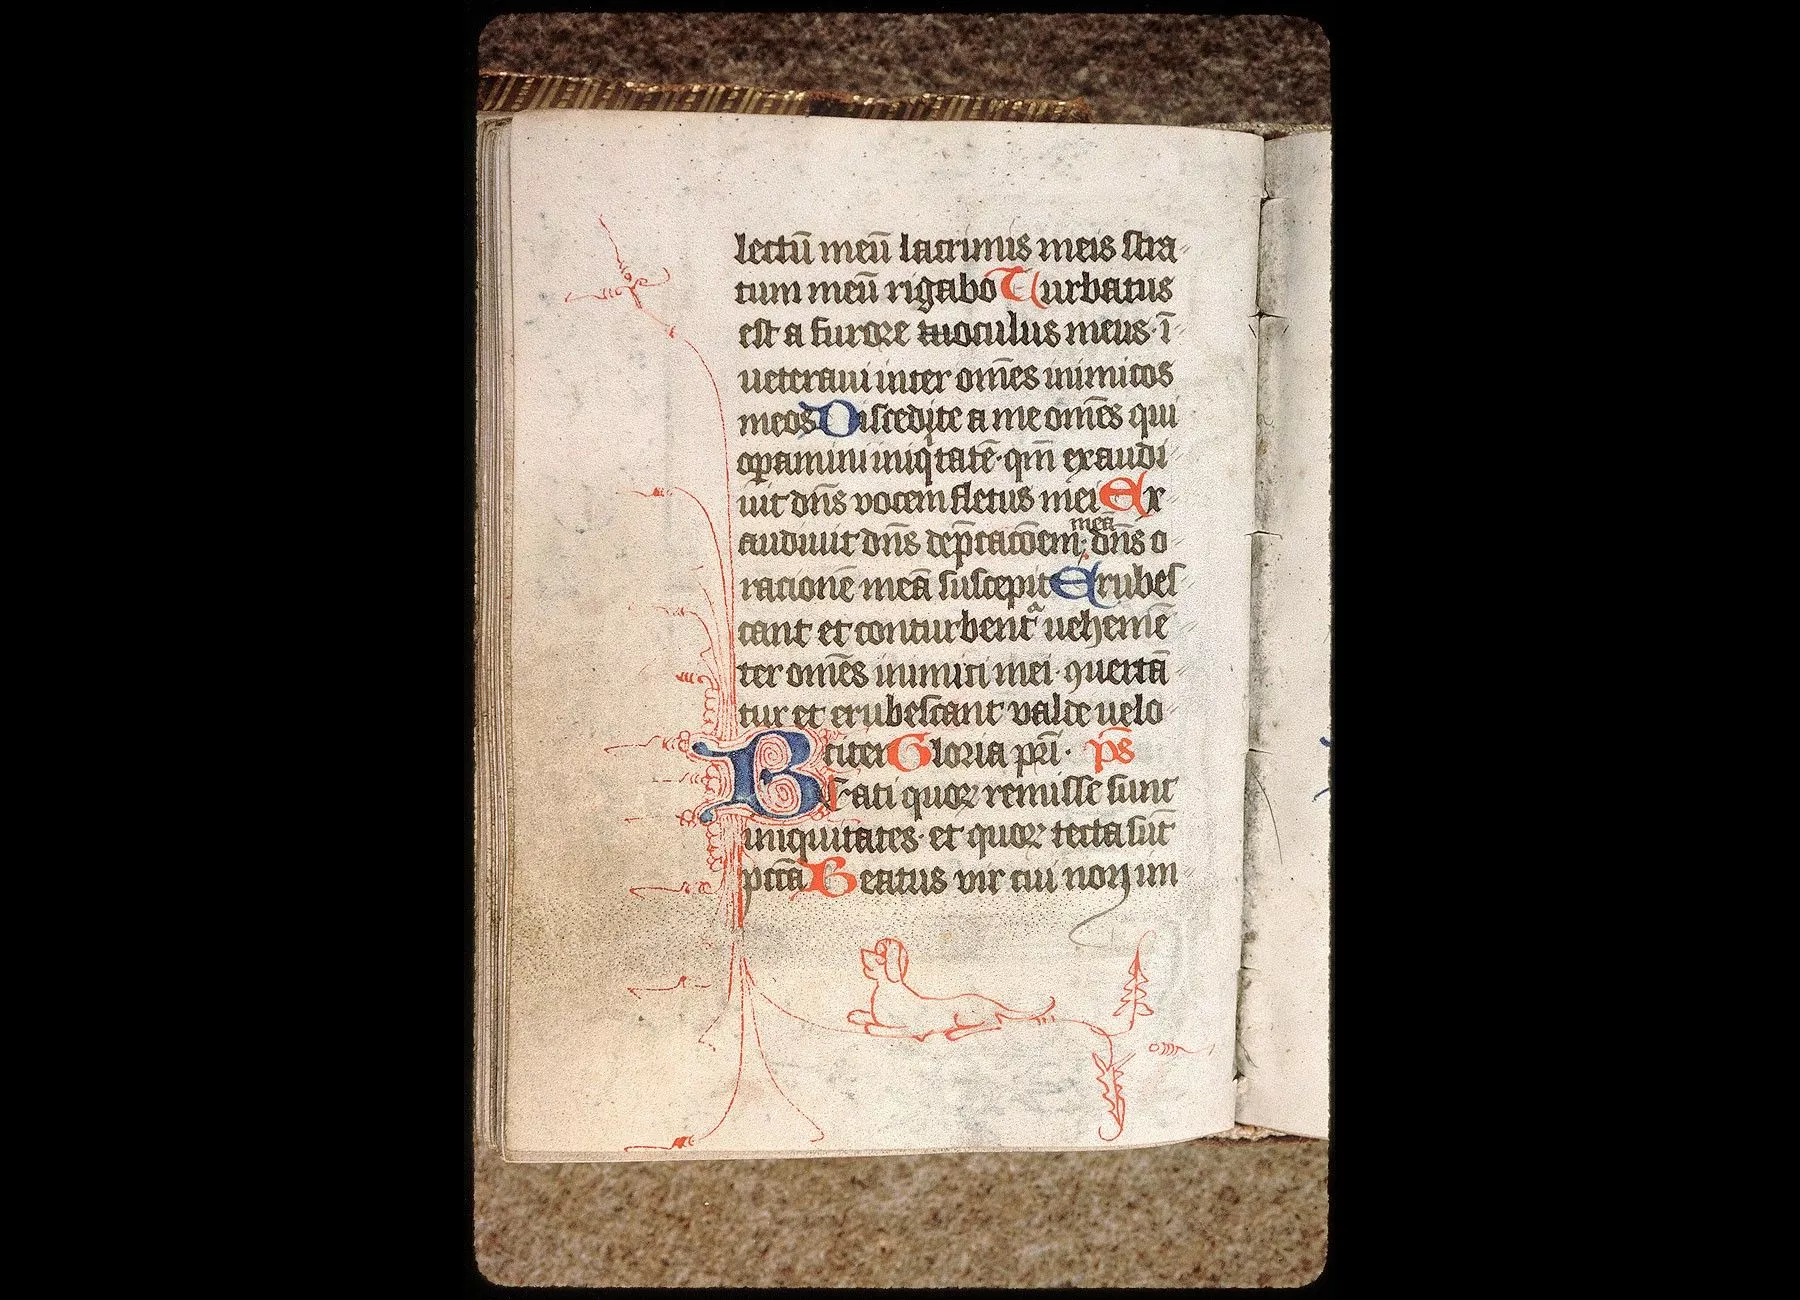 lectū meū lacrimis meis stra
tum meū rigabo Turbatus
est a furore tuoculus meus· ī
ueteraui inter om̄es inimicos
meos Discedite a me om̄es qui
opamini iniqtatē· qm̄ exaudi
uit dn̄s vocem fletus mei Ex
audiuit dn̄s dep̄cacōem meā· dn̄s o
racionē meā suscepit Erubes
cant et conturbentᷓ uehemē
ter om̄es inimici mei· ꝯuertā
tur et erubescant valde uelo
citer Gloria pr̄i· ps̄
Beati quoꝝ remisse sunt
iniquitates· et quoꝝ tecta sūt
pccā Beatus vir cui non im